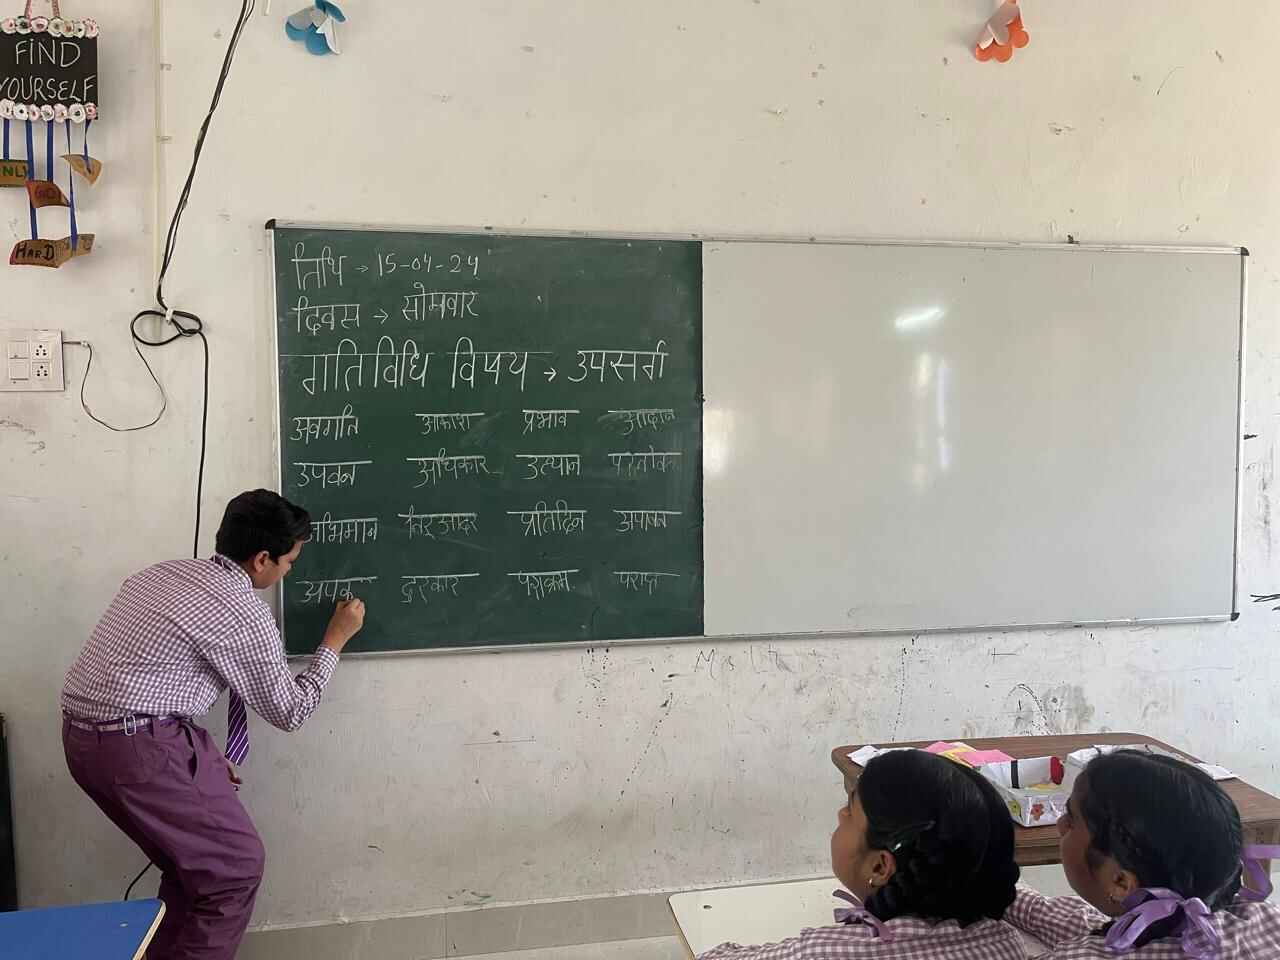 FIND
YOURSELF
ONLY
GO
HARD
तिथि → 15-04-24
दिवस → सोमवार
गतिविधि विषय → उपसर्ग
अवगति आकाश प्रभाव आदान
उपवन अधिकार उत्थान
अभिमान निर्आदर प्रतिदिन
अपक दुरकार पराक्रम